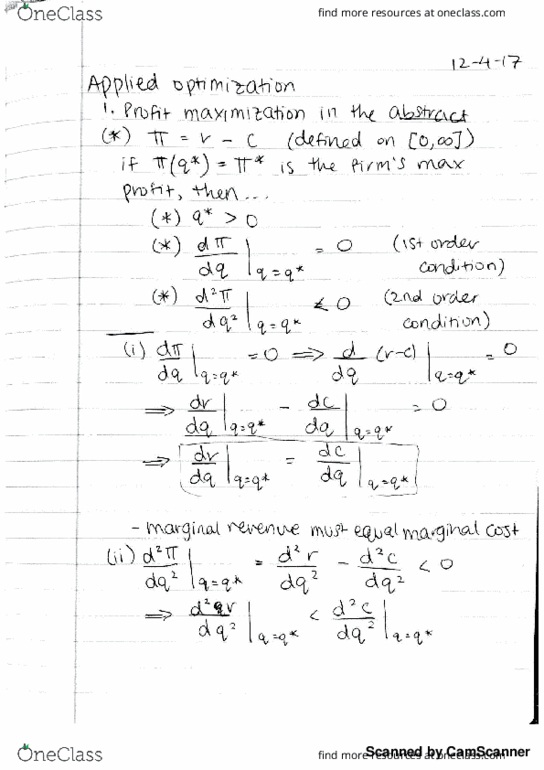 OneClass
find more resources at oneclass.com
12-4-17
Applied optimization
1. Profit maximization in the abstract
(*) π = r - c (defined on [0,∞])
if π(q*) = π* is the firm's max
profit, then...
(*) q* > 0
(*) dπ/dq |q=q* = 0 (1st order condition)
(*) d²π/dq² |q=q* < 0 (2nd order condition)
(i) dπ/dq |q=q* = 0 ⟹ d/dq (r-c) |q=q* = 0
⟹ dr/dq |q=q* - dc/dq |q=q* = 0
⟹ dr/dq |q=q* = dc/dq |q=q*
- marginal revenue must equal marginal cost
(ii) d²π/dq² |q=q* = d²r/dq² - d²c/dq² < 0
⟹ d²r/dq² |q=q* < d²c/dq² |q=q*
OneClass
find more resources at oneclass.com
Scanned by CamScanner